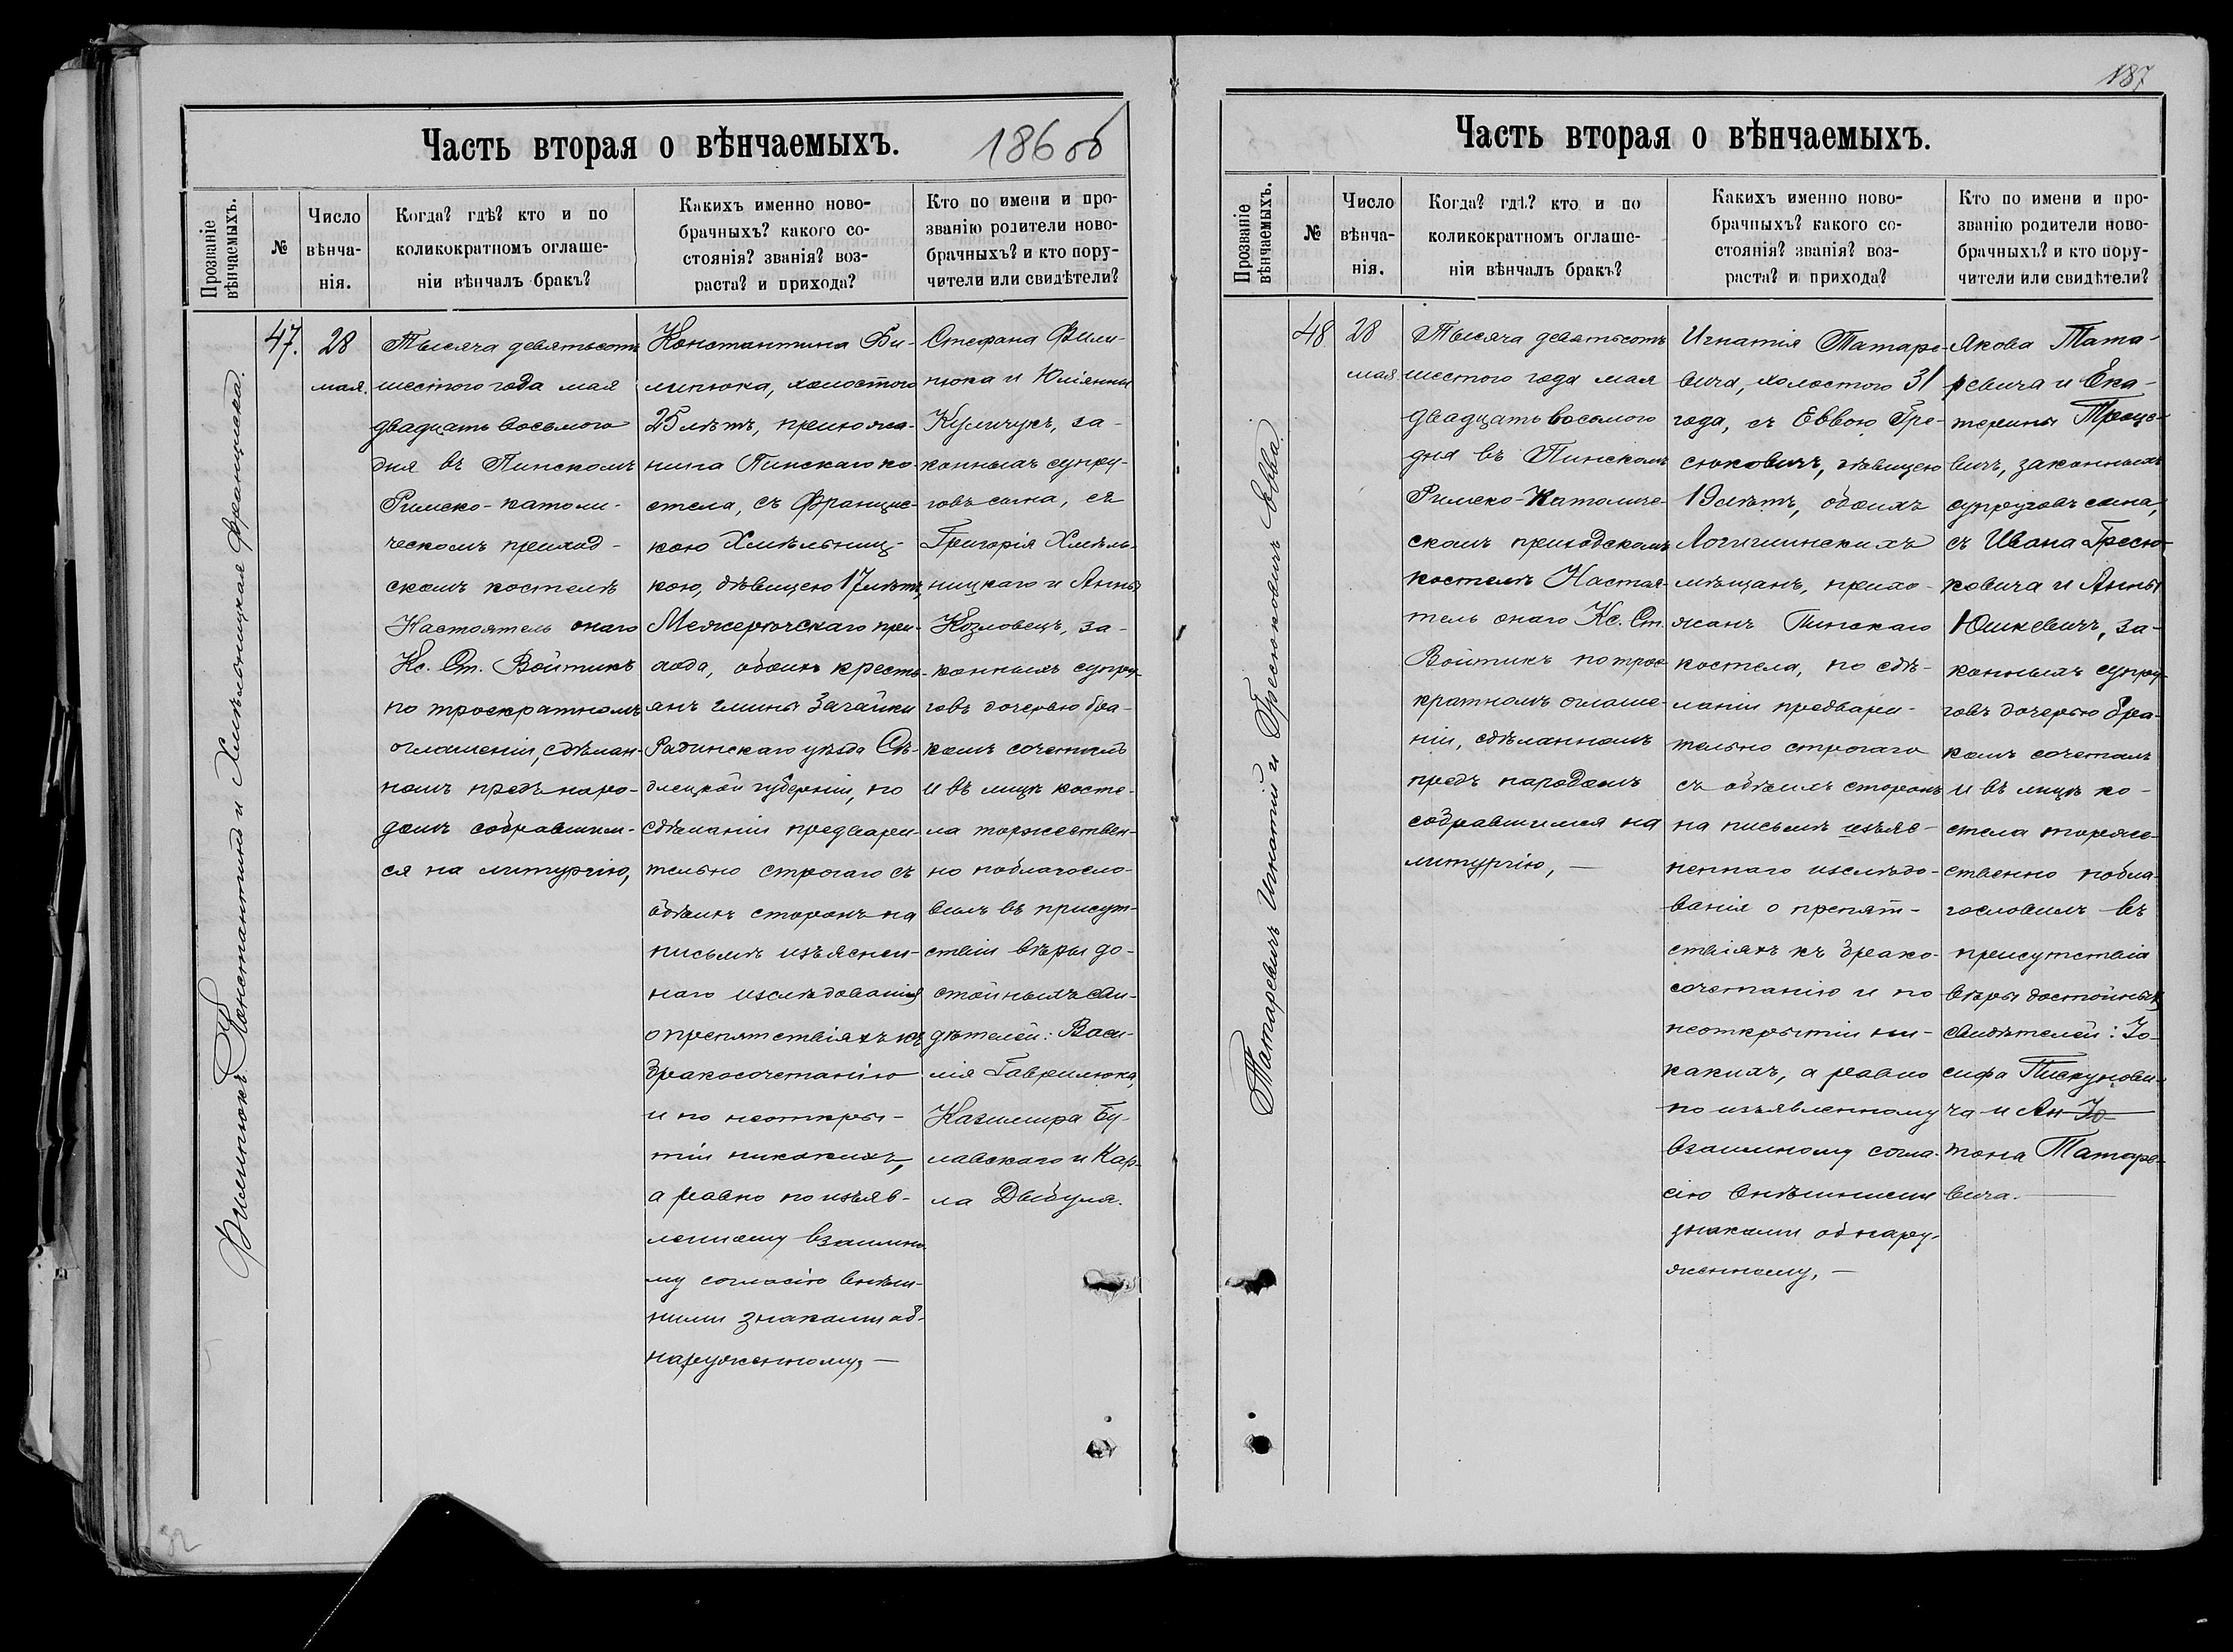 Часть вторая о вѣнчаемыхъ.
186 об
Прозваніе вѣнчаемыхъ.
№
Число вѣнча-
нія.
Когда? гдѣ? кто и по
коликократномъ оглаше-
ніи вѣнчалъ бракъ?
Какихъ именно ново-
брачныхъ? какого со-
стоянія? званія? воз-
раста? и прихода?
Кто по имени и про-
званію родители ново-
брачныхъ? и кто пору-
чители или свидѣтели?
Филипюкъ Константинъ и Хмѣльницкая Францишка.
47.
28
мая.
Тысяча девятьсотъ
шестого года мая
двадцать восьмого
дня въ Пинскомъ
Римско-католи-
ческомъ приход-
скомъ костелѣ
Настоятель онаго
Кс. Ст. Войтикъ
по троекратномъ
оглашеніи, сдѣлан-
номъ предъ наро-
домъ собравшим-
ся на литургію,
Константина Фи-
липюка, холостого
25 лѣтъ, прихожа-
нина Пинскаго ко-
стела, съ Францис-
кою Хмѣльниц-
кою, дѣвицею 17 лѣтъ,
Межерѣчскаго при-
хода, обоихъ кресть-
янъ гмины Загайки
Радинскаго уѣзда Сѣ-
длецкой губерніи, по
сдѣланіи предвари-
тельно строгаго съ
обѣихъ сторонъ на
письмѣ изъяснен-
наго изслѣдованія
о препятствіяхъ къ
бракосочетанію
и по неоткры-
тіи никакихъ,
а равно по изъяв-
ленному взаимно-
му согласію внѣш-
ними знаками об-
наруженному, —
Стефана Фили-
пюка и Юліянны
Куличукъ, за-
конныхъ супру-
говъ сына, съ
Григорія Хмѣль-
ницкаго и Анны
Козловецъ, за-
конныхъ супру-
говъ дочерью бра-
комъ сочеталъ
и въ лицѣ косте-
ла торжествен-
но поблагосло-
вилъ въ присут-
ствіи вѣры до-
стойныхъ сви-
дѣтелей: Васи-
лія Гаврилюка,
Казимира Бу-
лавскаго и Кар-
ла Дыбуля.
32
187
Часть вторая о вѣнчаемыхъ.
Прозваніе вѣнчаемыхъ.
№
Число
вѣнча-
нія.
Когда? гдѣ? кто и по
коликократномъ оглаше-
ніи вѣнчалъ бракъ?
Какихъ именно ново-
брачныхъ? какого со-
стоянія? званія? воз-
раста? и прихода?
Кто по имени и про-
званію родители ново-
брачныхъ? и кто пору-
чители или свидѣтели?
Татаревичъ Игнатій и Гресюковичъ Евва.
48
28
мая
Тысяча девятьсотъ
шестого года мая
двадцать восьмого
дня въ Пинскомъ
Римско-Католиче-
скомъ приходскомъ
костелѣ Настоя-
тель онаго Кс. Ст.
Войтикъ по трое-
кратномъ оглаше-
ніи, сдѣланномъ
предъ народомъ
собравшимся на
литургію, —
Игнатія Татаре-
вича, холостого 31
года, съ Еввою Гре-
сюковичъ, дѣвицею
19 лѣтъ, обоихъ
Логишинскихъ
мѣщанъ, прихо-
жанъ Пинскаго
костела, по сдѣ-
ланіи предвари-
тельно строгаго
съ обѣихъ сторонъ
на письмѣ изъяс-
неннаго изслѣдо-
ванія о препят-
ствіяхъ къ брако-
сочетанію и по
неоткрытіи ни-
какихъ, а равно
по изъявленному
взаимному согла-
сію внѣшними
знаками обнару-
женному, —
Якова Тата-
ревича и Ека-
терины Троце-
вичъ, законныхъ
супруговъ сына,
съ Ивана Гресю-
ковича и Анны
Юшкевичъ, за-
конныхъ супру-
говъ дочерью бра-
комъ сочеталъ
и въ лицѣ ко-
стела торже-
ственно побла-
гословилъ въ
присутствіи
вѣры достойныхъ
свидѣтелей: Іо-
сифа Пискунови-
ча и Ан-
тона Татаре-
вича. —